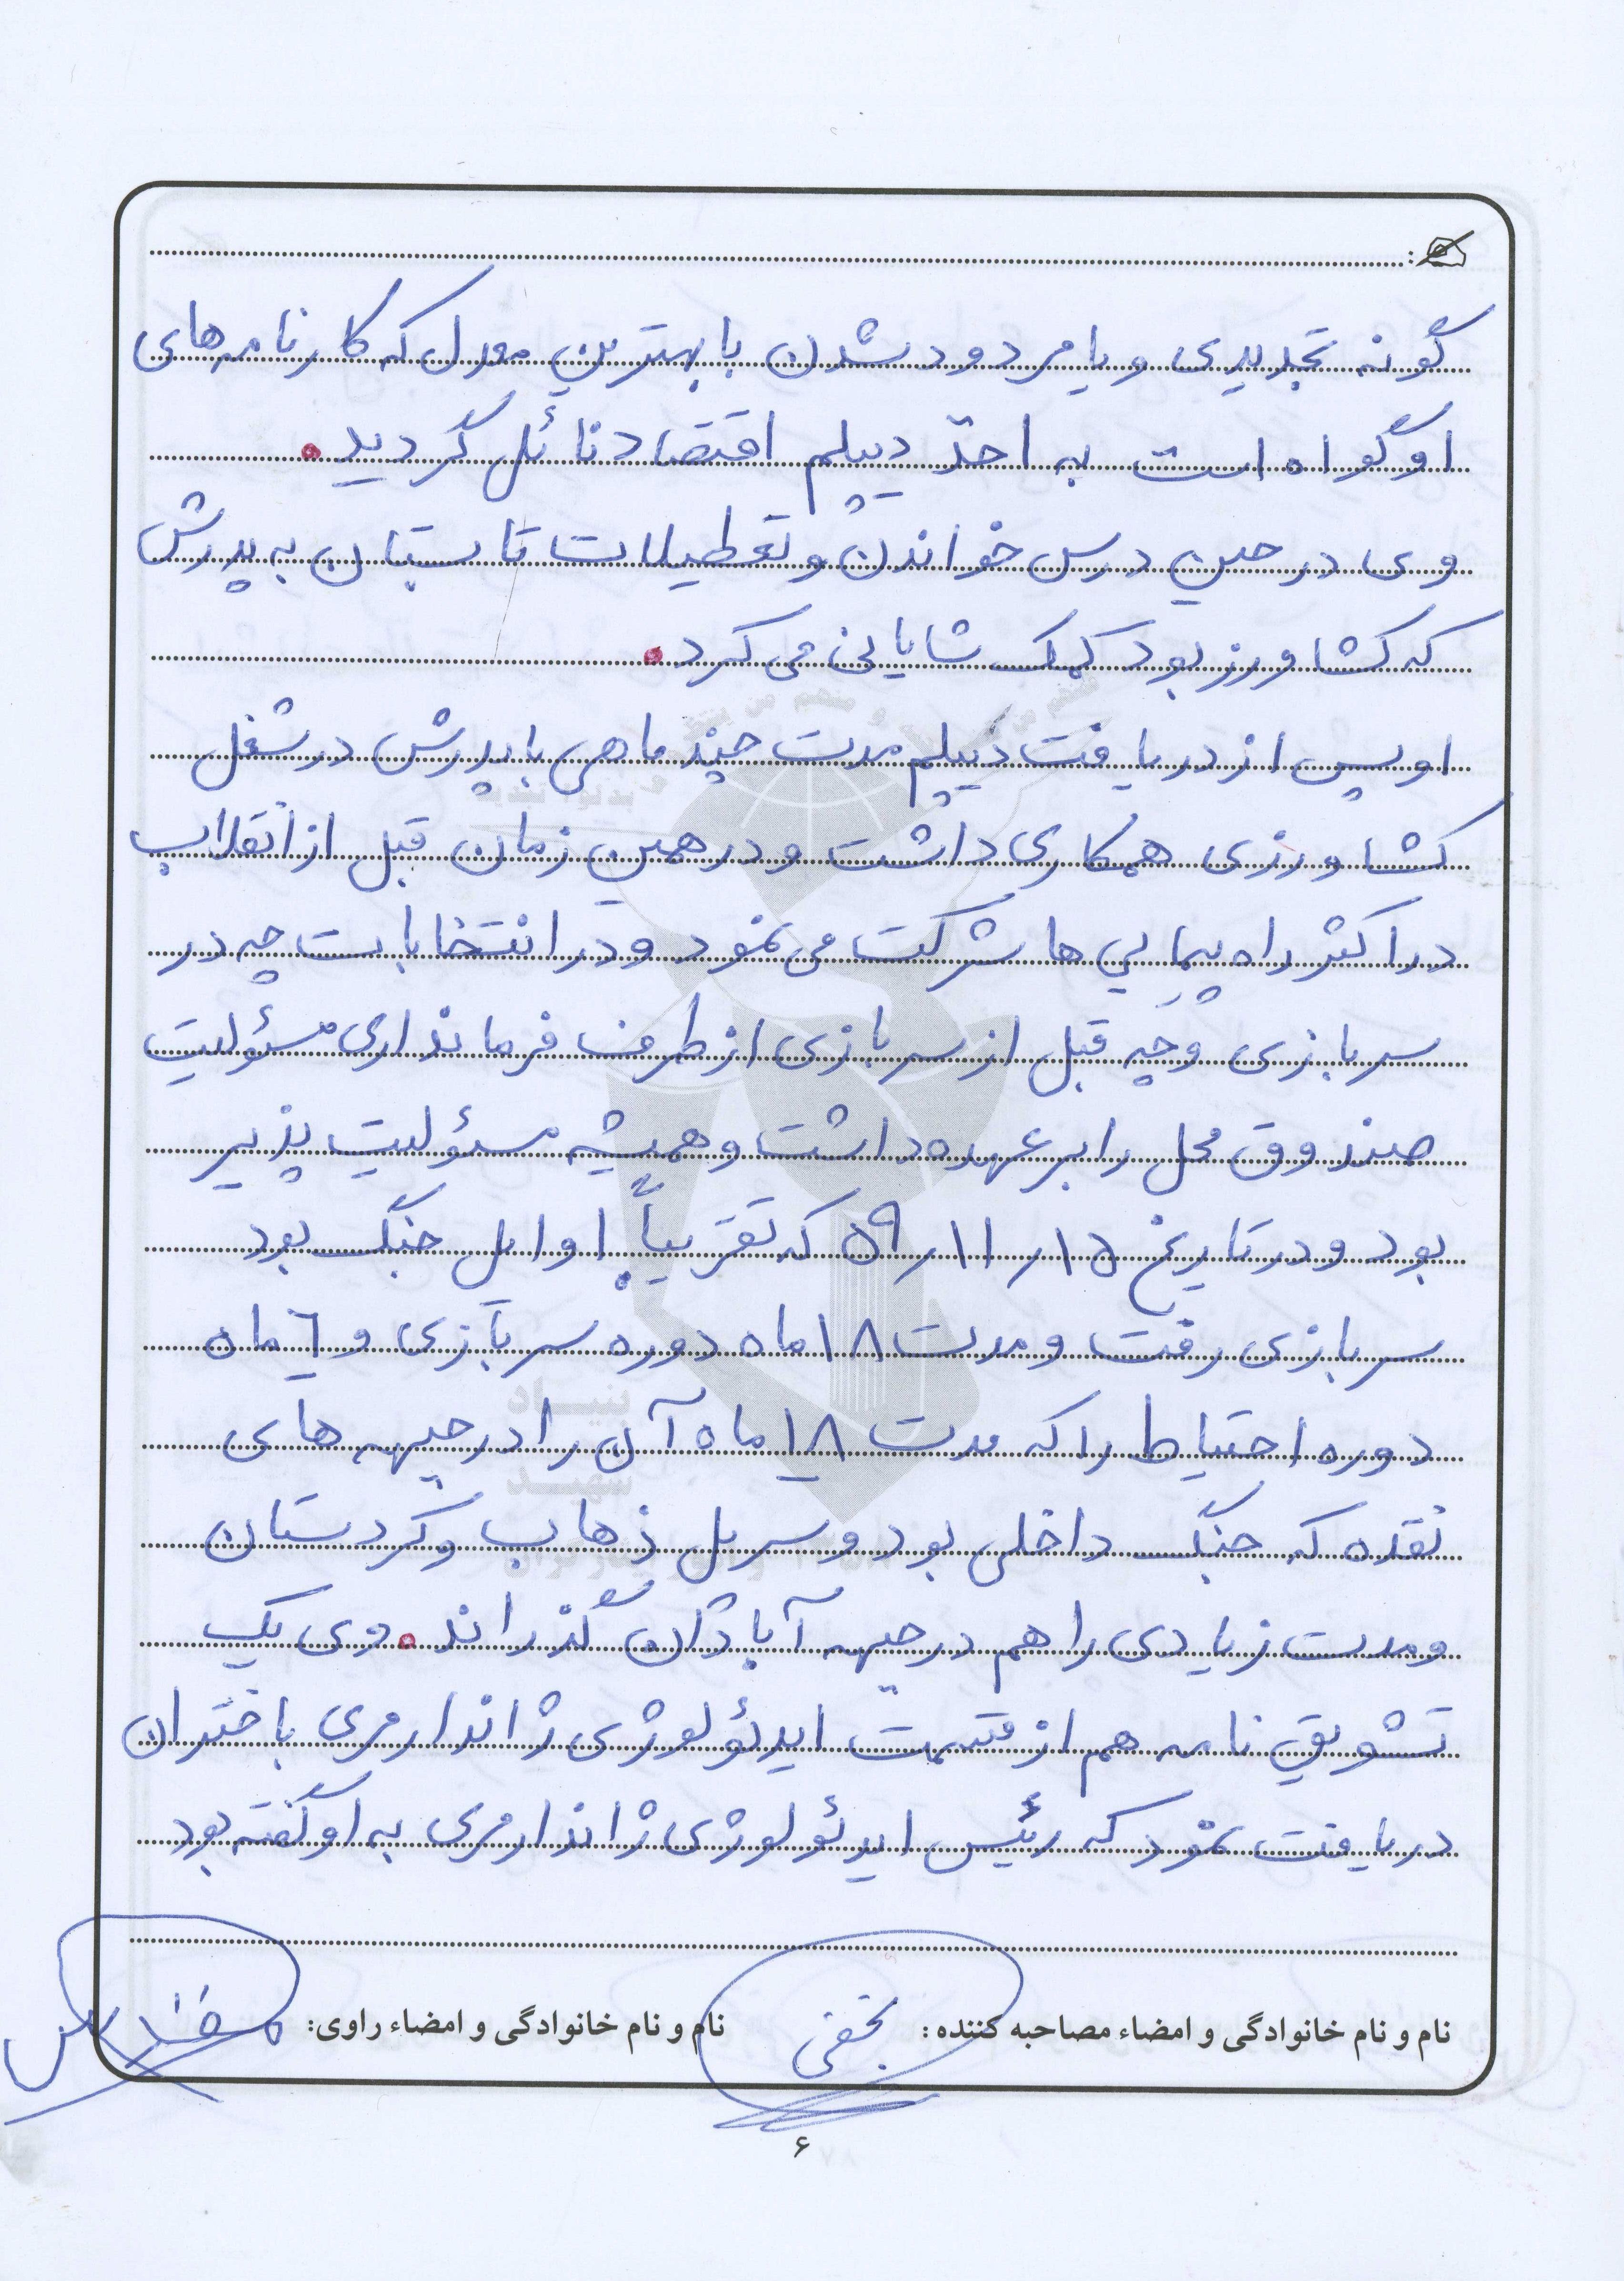 گونه تجدیدی و یا مردود شدن با بهترین معدل که کارنامه های
او گواه است به اخذ دیپلم اقتصاد نائل گردید.
وی در حین درس خواندن و تعطیلات تابستان به پدرش
که کشاورز بود کمک شایانی می کرد.
او پس از دریافت دیپلم مدت چند ماهی با پدرش در شغل
کشاورزی همکاری داشت و در همین زمان قبل از انقلاب
در اکثر راه پیمایی ها شرکت می نمود و در انتخابات چه در
سربازی و چه قبل از سربازی از طرف فرمانداری مسئولیت
صندوق محل را بر عهده داشت و همیشه مسئولیت پذیر
بود و در تاریخ ۱۵ر۱۱ر۵۹ که تقریباً اوایل جنگ بود
سربازی رفت و مدت ۱۸ ماه دوره سربازی و ۶ ماه
دوره احتیاط را که مدت ۱۸ ماه آن را در جبهه های
نقده که جنگ داخلی بود و سرپل ذهاب و کردستان
و مدت زیادی را هم در جبهه آبادان گذراند. وی یک
تشویق نامه هم از قسمت ایدئولوژی ژاندارمری باختران
دریافت نمود که رئیس ایدئولوژی ژاندارمری به او گفته بود
نام و نام خانوادگی و امضاء مصاحبه کننده: نجفی نام و نام خانوادگی و امضاء راوی:
۶
بنیاد
شهید